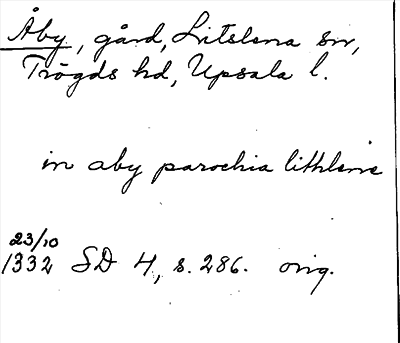 Åby, gård, Litslena sn,
Trögds hd, Upsala l.
in aby parochia lithlene
23/10
1332 SD 4, s. 286. orig.